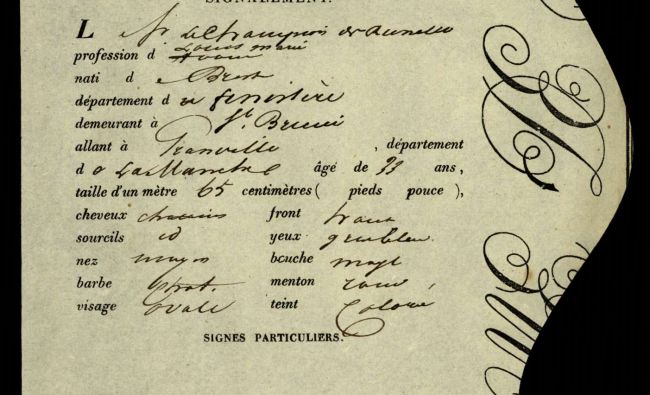 SIGNALEMENT.
L Sr Le François de
profession d Louis marie
nati d e Brest
département d u finistère
demeurant à St. Brieuc
allant à Granville , département
d e La Manche âgé de 33 ans,
taille d'un mètre 65 centimètres ( pieds pouce ),
cheveux chatains front haut
sourcils id yeux gris bleu
nez moyen bouche moye
barbe chat. menton rond
visage ovale teint Coloré
SIGNES PARTICULIERS.